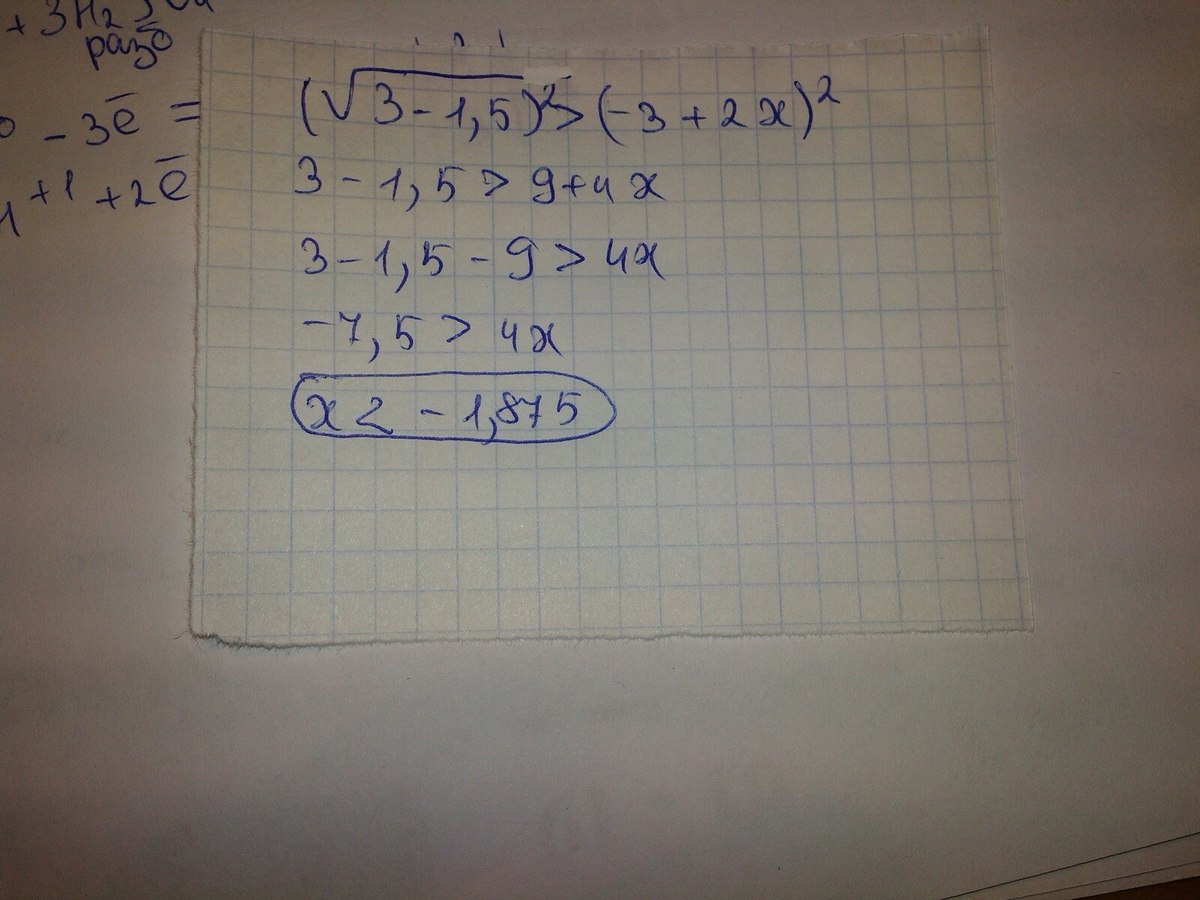 + 3H₂
разб
- 3ē =
+1 + 2ē
(√3 - 1,5)² > (-3 + 2x)²
3 - 1,5 > 9+4x
3 - 1,5 - 9 > 4x
-7,5 > 4x
x < - 1,875